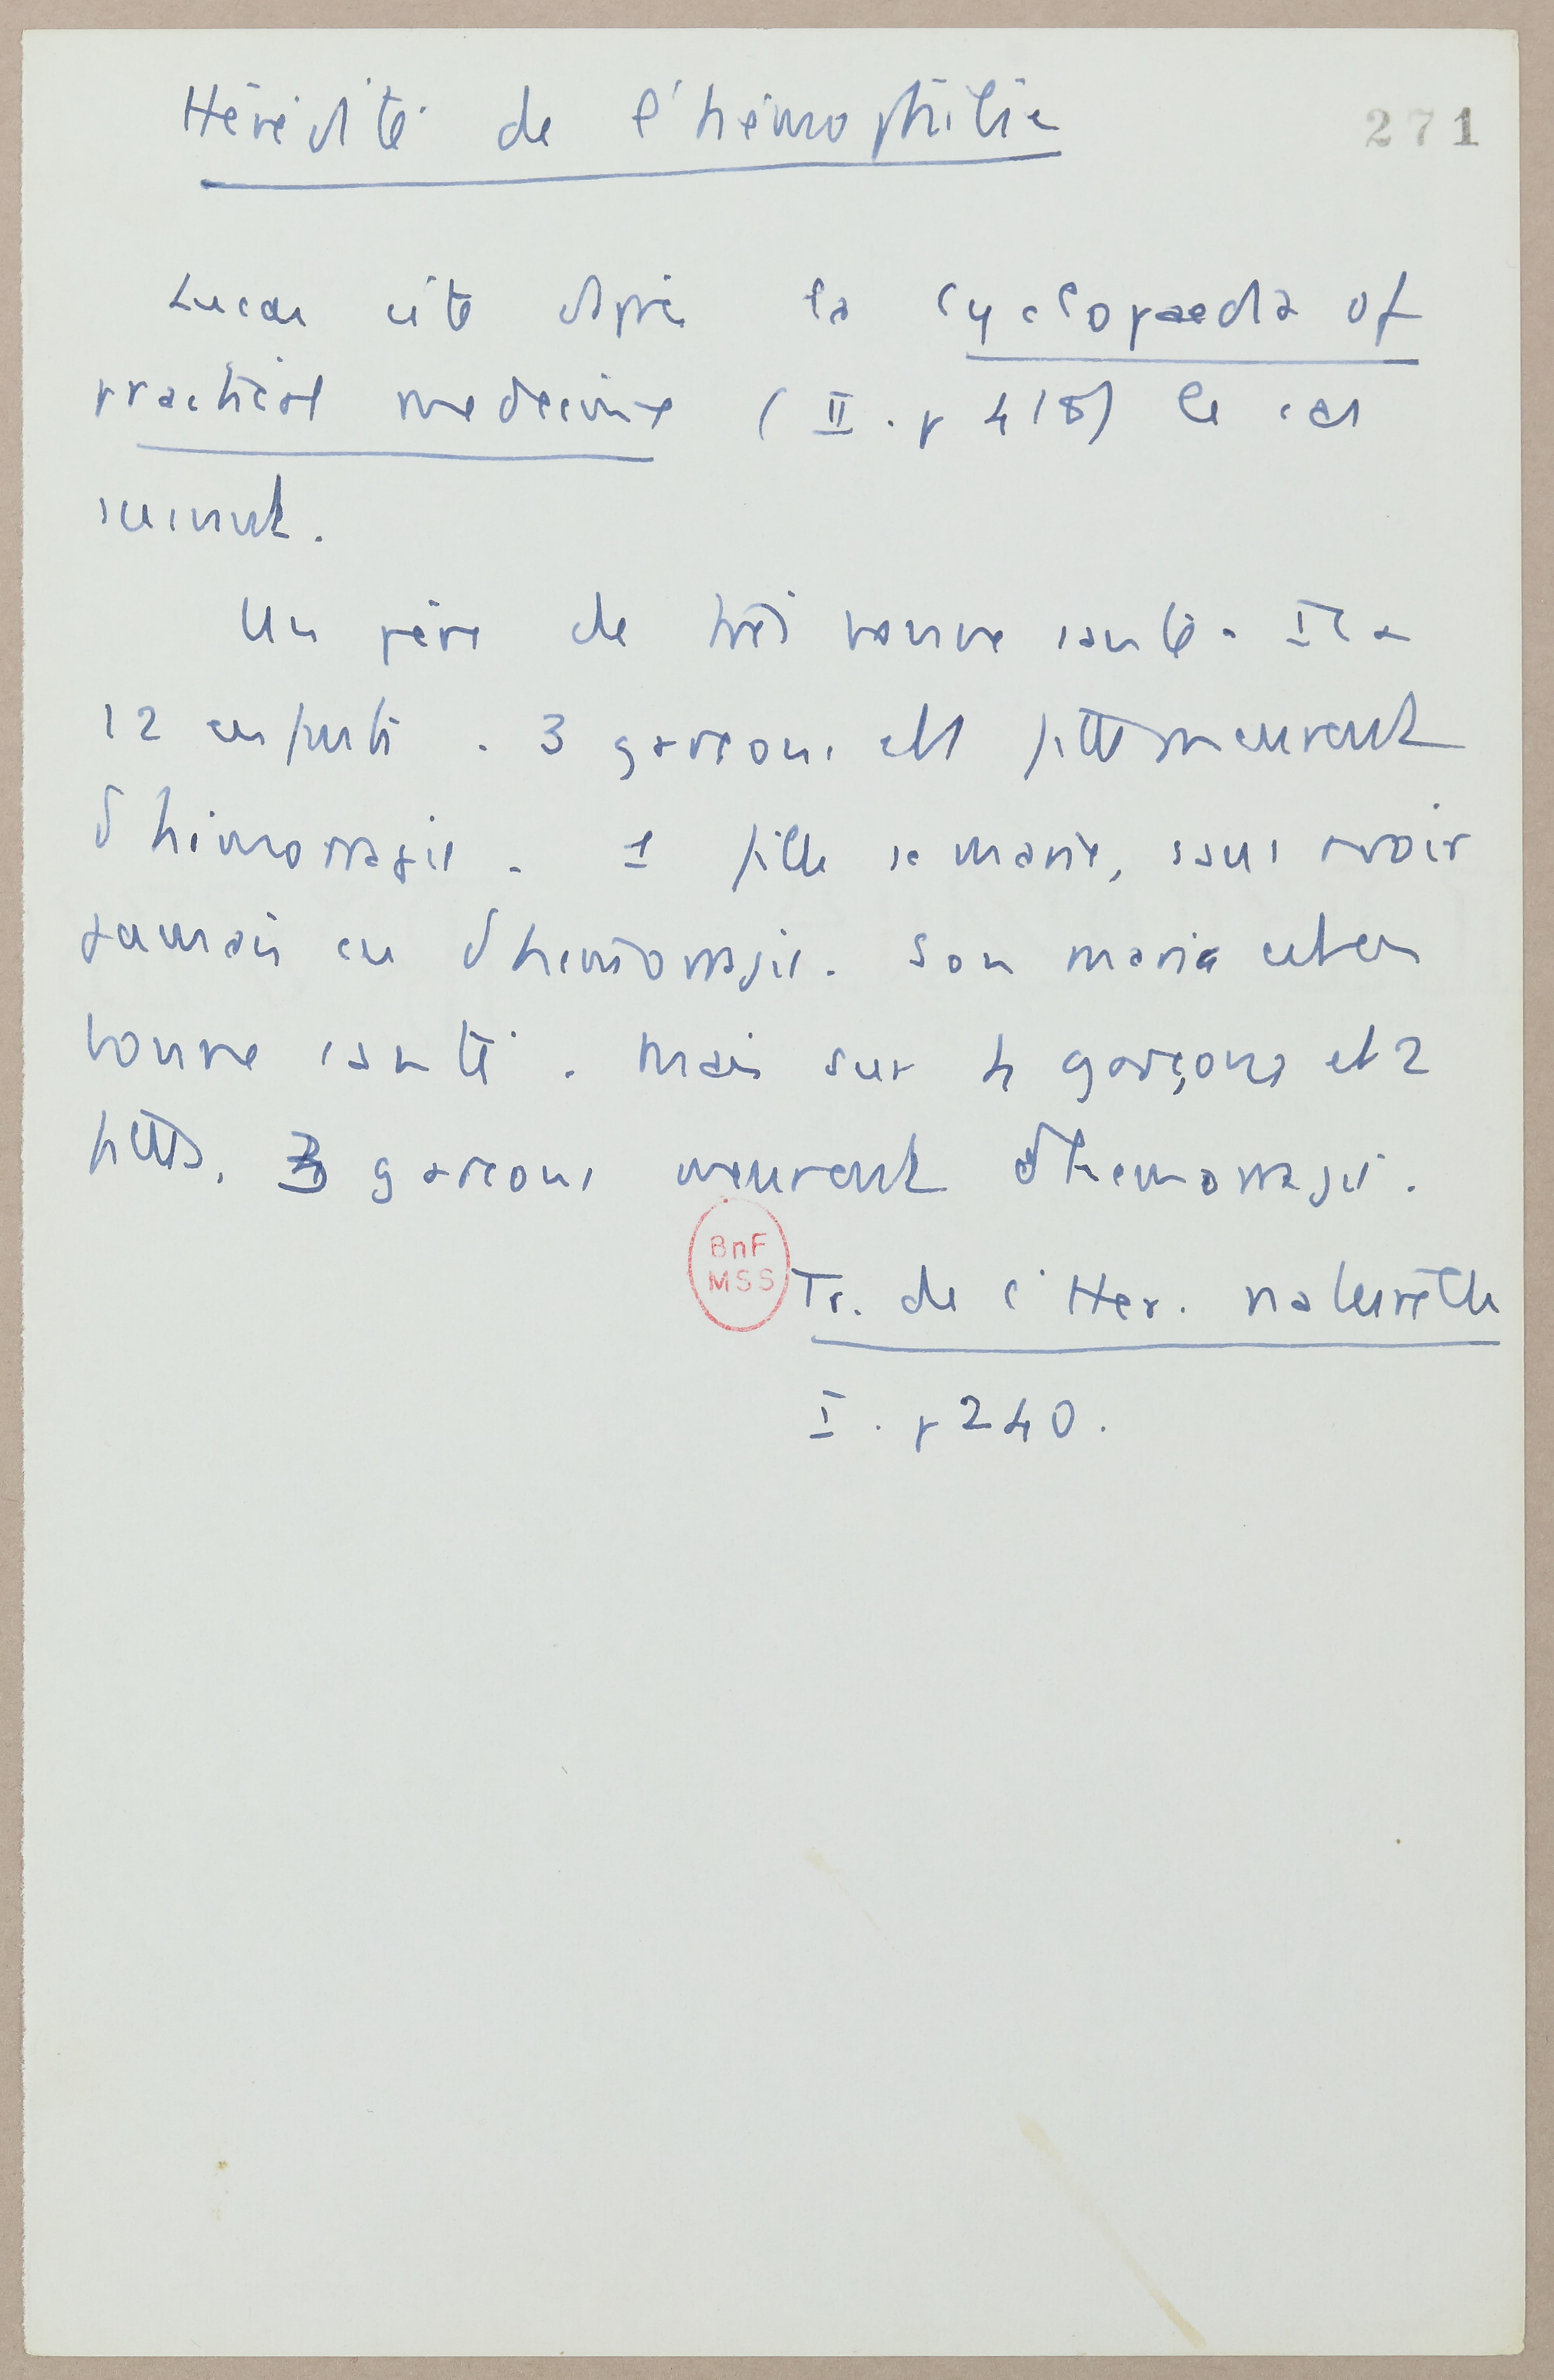 Hérédité de l'hémophilie
271
Lucas cite d'après la Cyclopaedia of
practical medecine (II. p 418) le cas
suivant.
Un père de très bonne santé. Il a
12 enfants. 3 garçons et 1 fille meurent
d'hémorragie. 1 fille se marie, sans avoir
jamais eu d'hémorragie. Son mari est en
bonne santé. Mais sur 4 garçons et 2
filles, 3 garçons meurent d'hémorragie.
BnF
MSS
Tr. de l'Her. naturelle
I. p 240.